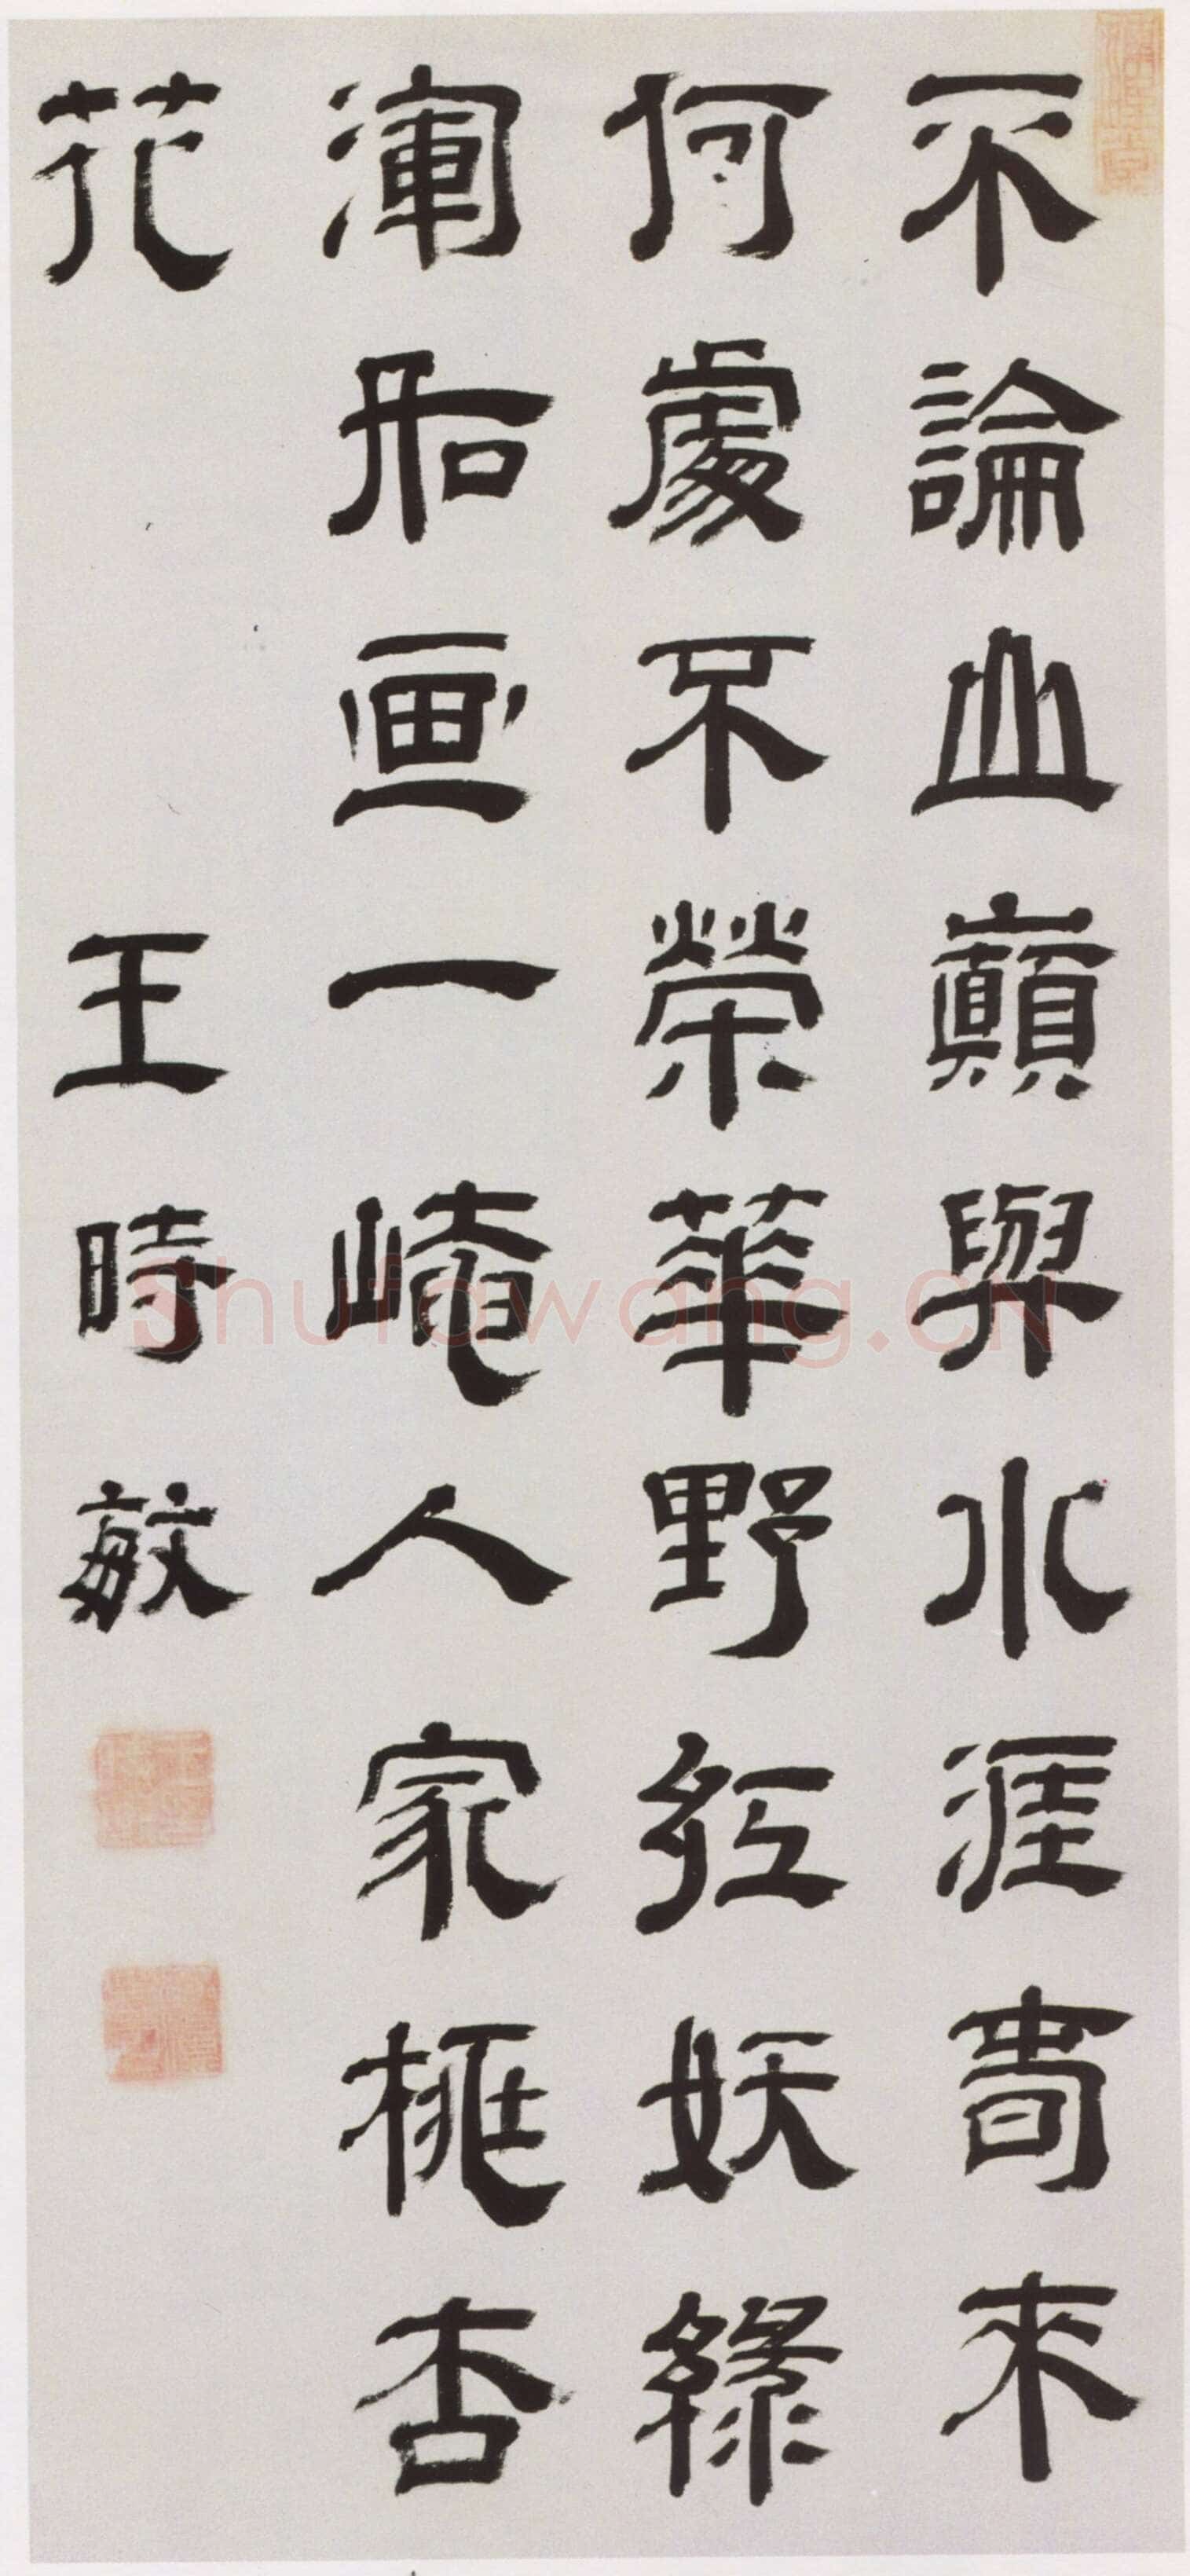 不論山巔與水涯春來
何處不榮華野紅妖綠
渾如画一嶂人家桃杏
花
王時敏
Shufawang.CN